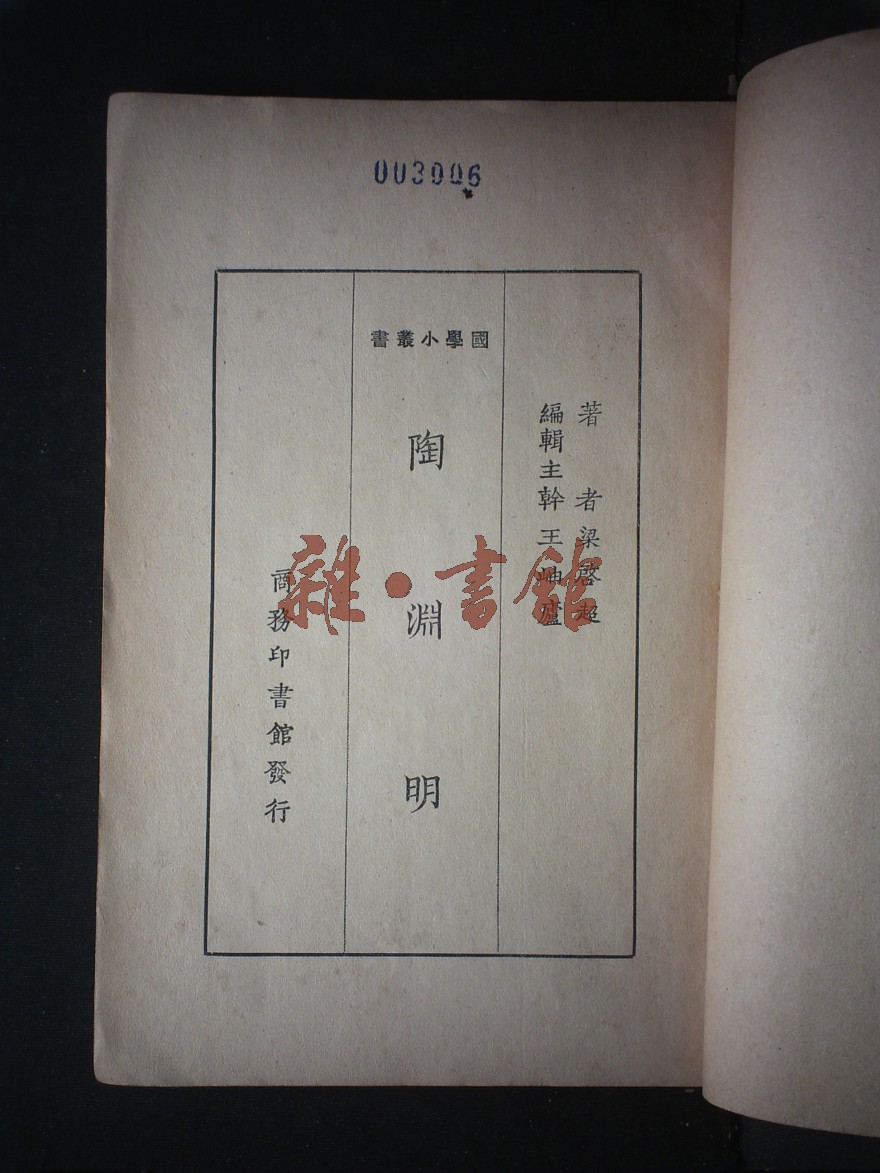 003006
著者梁啓超
編輯主幹王岫廬
國學小叢書
陶淵明
商務印書館發行
雜·書館